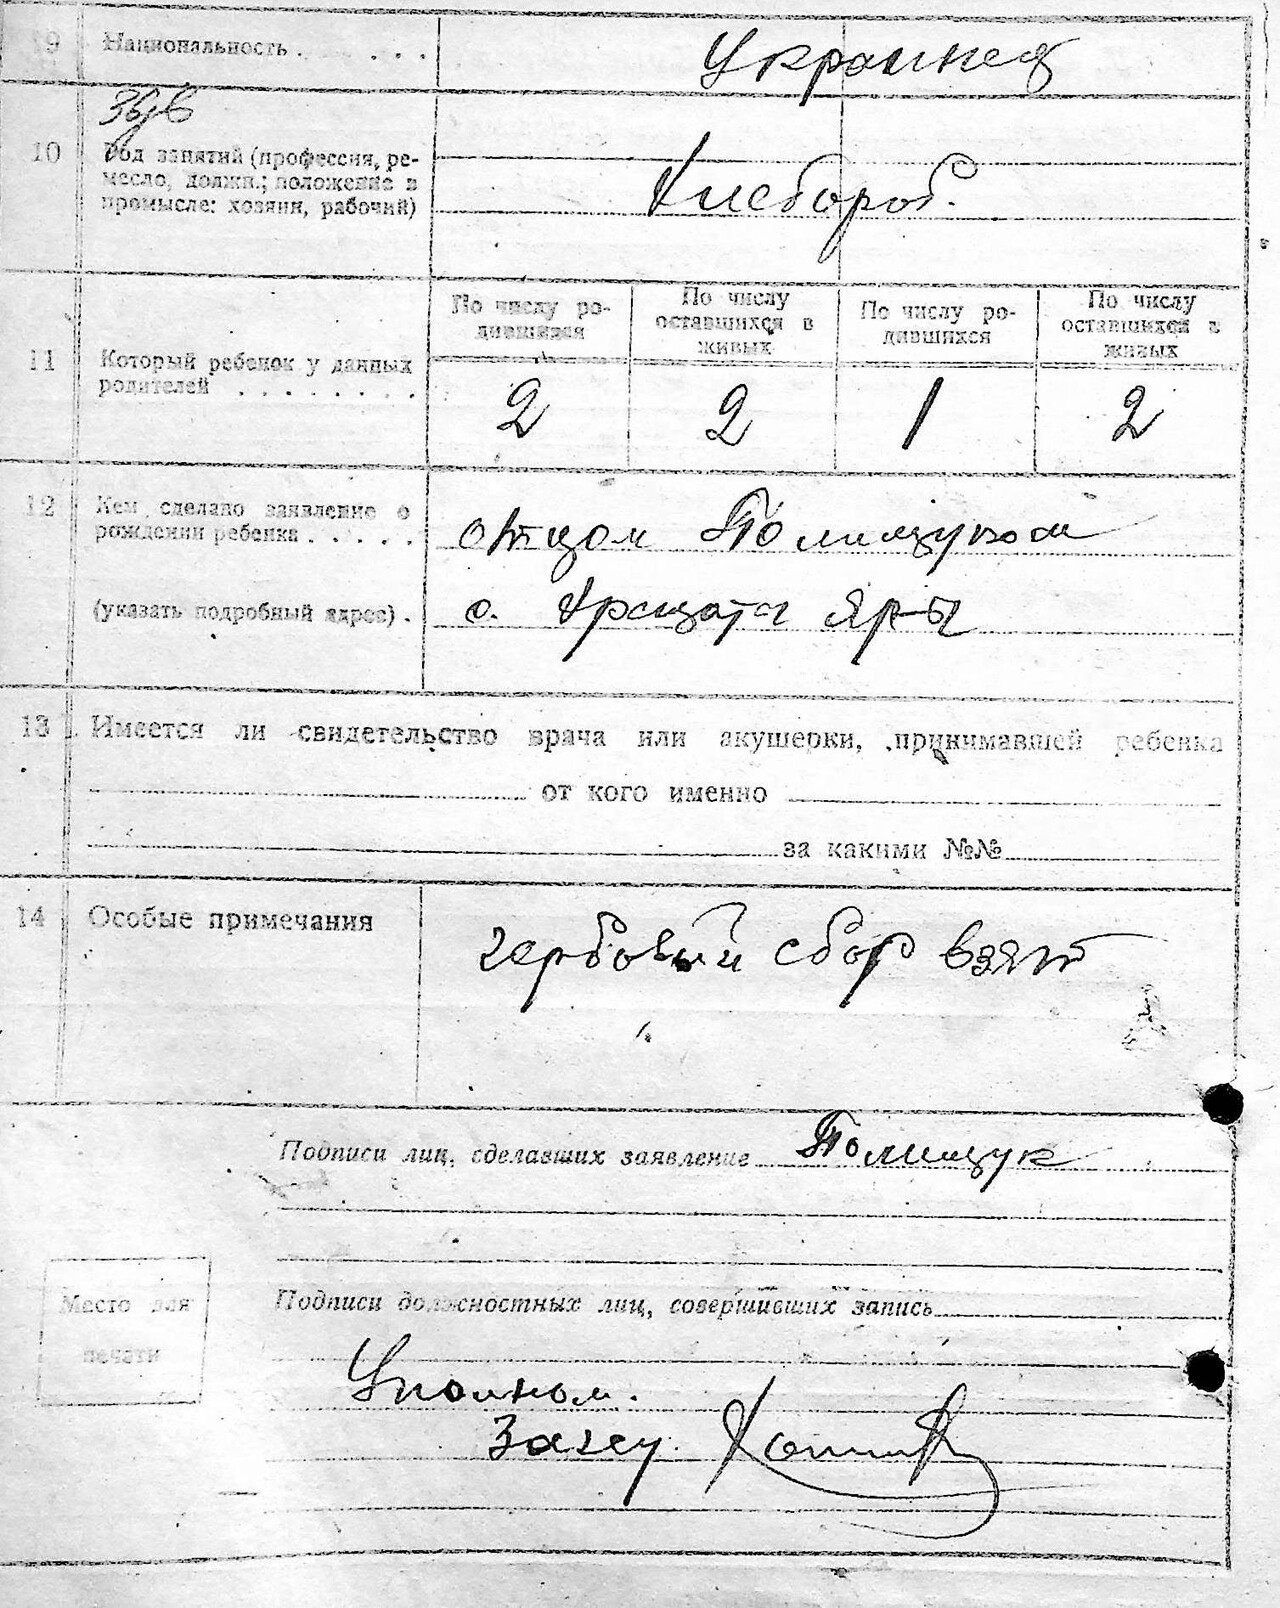 9 Национальность . . . . Украинец
10 Род занятий (профессия, ре-
месло, должн.; положение в
промысле: хозяин, рабочий)
Хлебороб.
По числу ро-
дившихся
По числу
оставшихся в
живых
По числу ро-
дившихся
По числу
оставшихся в
живых
11 Который ребенок у данных
родителей . . . . . . . .
2 2 1 2
12 Кем сделано заявление о
рождении ребенка . . . . .
отцом Полищуком
(указать подробный адрес) .
с. Яры
13 Имеется ли свидетельство врача или акушерки, принимавшей ребенка
от кого именно
за какими №№
14 Особые примечания
гербовый сбор взят
Подписи лиц, сделавших заявление Полищук
Место для
печати
Подписи должностных лиц, совершивших запись
Уполном.